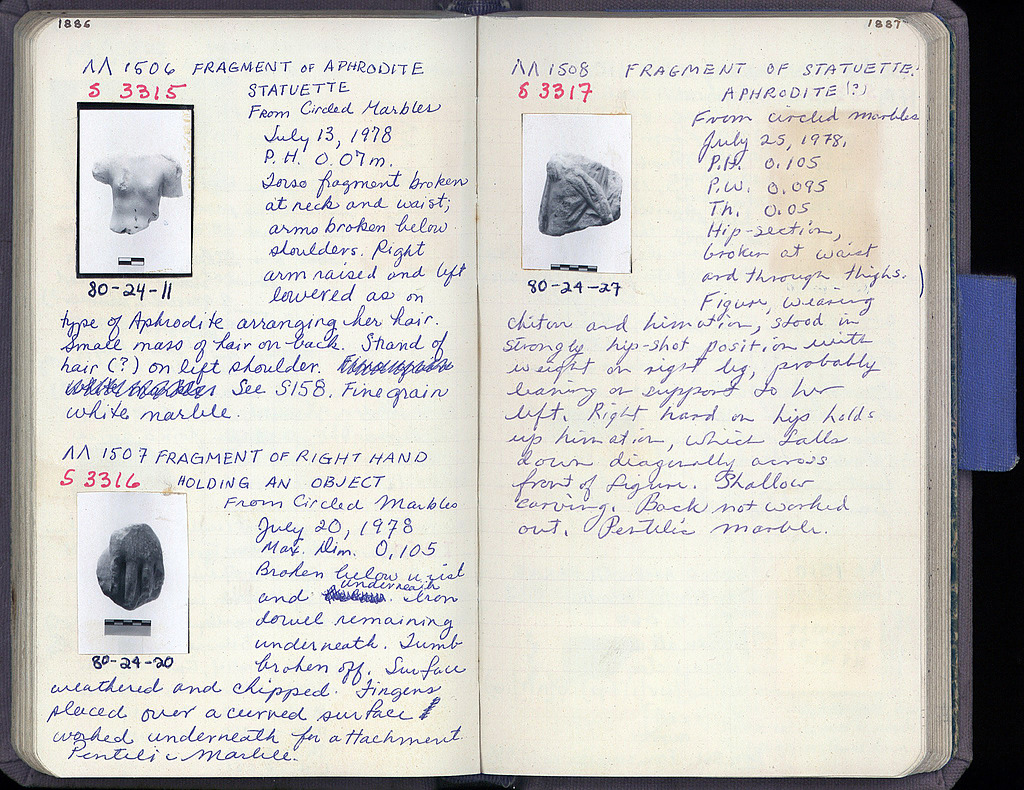 1886
ΛΛ 1506 FRAGMENT OF APHRODITE
S 3315 STATUETTE
From Circled Marbles
July 13, 1978
P.H. 0.07m.
Torso fragment broken
at neck and waist;
arms broken below
shoulders. Right
arm raised and left
80-24-11
lowered as on
type of Aphrodite arranging her hair.
Small mass of hair on back. Strand of
hair (?) on left shoulder.
See S158. Fine grain
white marble.
ΛΛ 1507 FRAGMENT OF RIGHT HAND
S 3316 HOLDING AN OBJECT
From Circled Marbles
July 20, 1978
Max. Dim. 0,105
Broken below wrist
underneath
and Iron
dowel remaining
underneath. Tumb
80-24-20
broken off. Surface
weathered and chipped. Fingers
placed over a curved surface
worked underneath for attachment.
Pentelic Marble.
1887
ΛΛ 1508 FRAGMENT OF STATUETTE:
S 3317 APHRODITE (?)
From circled marbles
July 25, 1978.
P.H. 0.105
P.W. 0.095
Th. 0.05
Hip-section,
broken at waist
and through thighs.
80-24-27
Figure, wearing
chiton and himation, stood in
strongly hip-shot position with
weight on right leg, probably
leaning on support to her
left. Right hand on hip holds
up himation, which falls
down diagonally across
front of figure. Shallow
carving. Back not worked
out. Pentelic marble.